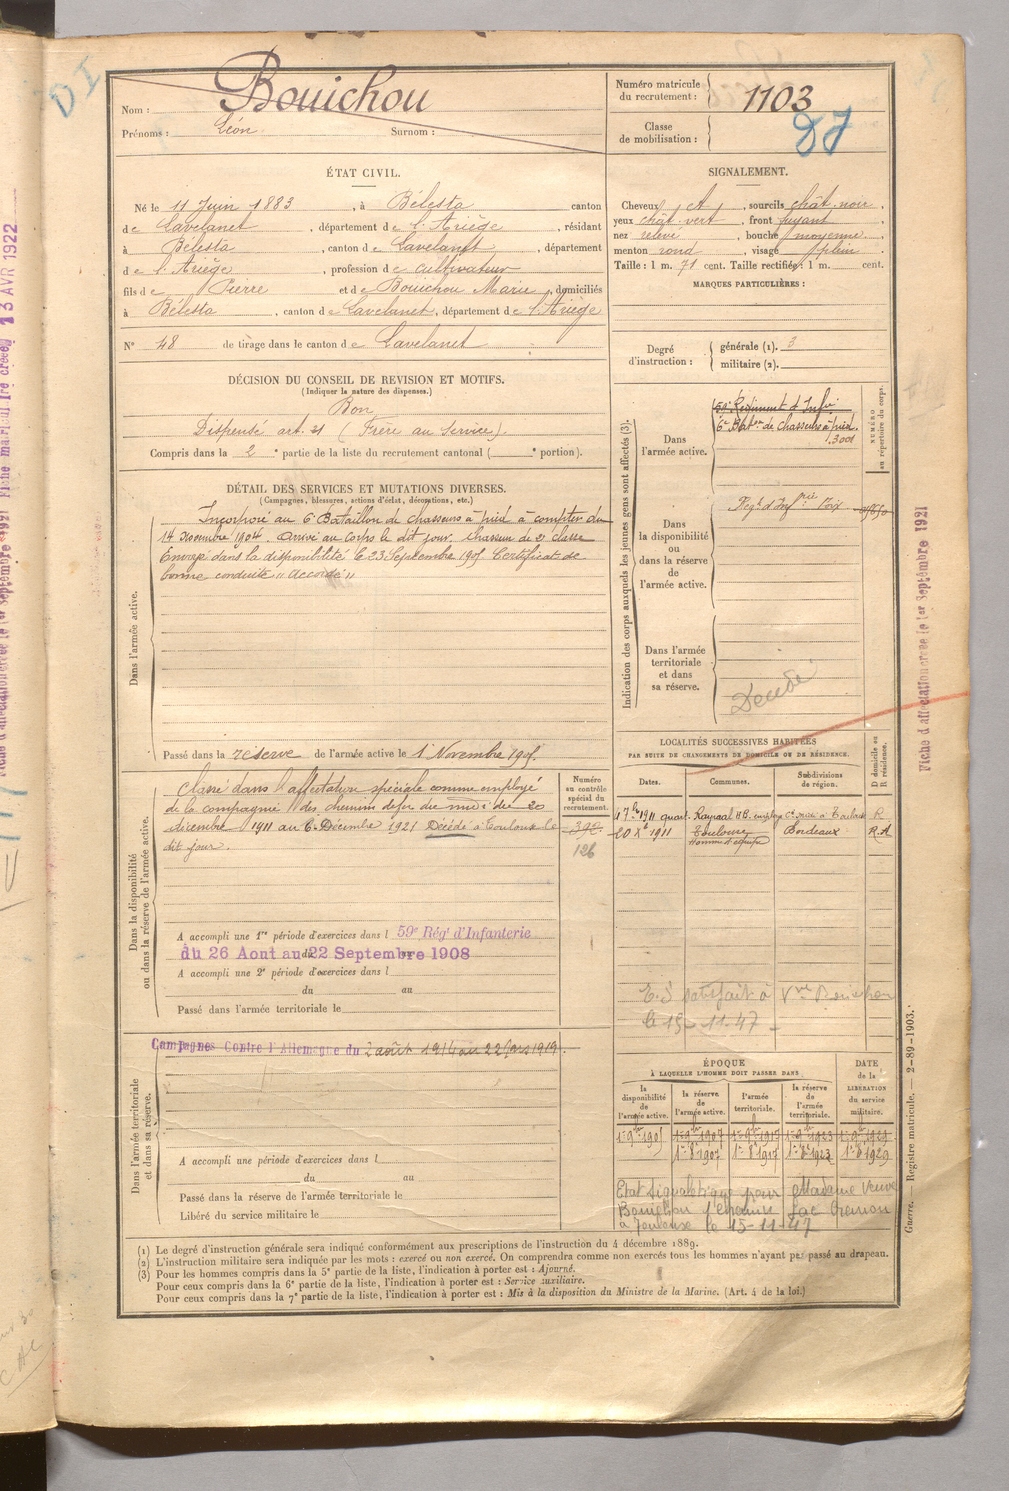 DI
Nom : Bouichou
Prénoms : Léon Surnom :
Numéro matricule du recrutement : 1103
Classe de mobilisation :
ÉTAT CIVIL.
Né le 11 Juin 1883, à Bélesta canton
de Lavelanet, département de l'Ariège, résidant
à Bélesta, canton de Lavelanet, département
de l'Ariège, profession de cultivateur
fils de Pierre et de Bouichou Marie, domiciliés
à Bélesta, canton de Lavelanet, département de l'Ariège
N° 48 de tirage dans le canton de Lavelanet
SIGNALEMENT.
Cheveux ct, sourcils chât. noir,
yeux chât. vert, front fuyant
nez relevé, bouche moyenne,
menton rond, visage plein
Taille : 1 m. 71 cent. Taille rectifiée : 1 m. cent.
MARQUES PARTICULIÈRES :
Degré d'instruction : générale (1). 3
militaire (2).
DÉCISION DU CONSEIL DE REVISION ET MOTIFS.
(Indiquer la nature des dispenses.)
Bon
Dispensé art. 21 (Frère au Service)
Compris dans la 2e partie de la liste du recrutement cantonal ( e portion).
DÉTAIL DES SERVICES ET MUTATIONS DIVERSES.
(Campagnes, blessures, actions d'éclat, décorations, etc.)
Dans l'armée active.
Incorporé au 6e Bataillon de chasseurs à pied à compter du
14 Novembre 1904. Arrivé au corps le dit jour. chasseur de 2e classe
Envoyé dans la disponibilité le 23 Septembre 1905 Certificat de
bonne conduite "accordé"
Passé dans la réserve de l'armée active le 1 Novembre 1907
Indication des corps auxquels les jeunes gens sont affectés (3).
Dans l'armée active.
59e Régiment d'Infie
6e Baton de Chasseurs à pied.
1.3001
NUMÉRO au répertoire du corps.
Dans la disponibilité ou dans la réserve de l'armée active.
Régt d'Infanterie Foix
Dans l'armée territoriale et dans sa réserve.
Décédé
Dans la disponibilité ou dans la réserve de l'armée active.
Classé dans l'affectation spéciale comme employé
de la compagnie des chemins de fer du midi du 20
décembre 1911 au 6 Décembre 1921 Décédé à Toulouse le
dit jour.
Numéro au contrôle spécial du recrutement.
392
126
A accompli une 1re période d'exercices dans l 59e Rég' d'Infanterie
du 26 Aout au 22 Septembre 1908
A accompli une 2e période d'exercices dans l
du au
Passé dans l'armée territoriale le
LOCALITÉS SUCCESSIVES HABITÉES
PAR SUITE DE CHANGEMENTS DE DOMICILE OU DE RÉSIDENCE.
Dates. Communes. Subdivisions de région. D domicile ou R résidence.
Toulouse R
20 Xbre 1911 Toulouse Bordeaux R.A
Homme d'équipe
E.S satisfait à Vve Bouichou
le 15-11-47
Dans l'armée territoriale et dans sa réserve.
Campagnes Contre l'Allemagne du 2 août 1914 au 22 Mars 1919.
A accompli une période d'exercices dans l
du au
Passé dans la réserve de l'armée territoriale le
Libéré du service militaire le
ÉPOQUE
À LAQUELLE L'HOMME DOIT PASSER DANS
la disponibilité de l'armée active. la réserve de l'armée active. l'armée territoriale. la réserve de l'armée territoriale. DATE de la LIBÉRATION du service militaire.
1-9bre 1905 1-9bre 1907 1-9bre 1917 1-9bre 1923 1-9bre 1929
1-8bre 1907 1-8bre 1917 1-8bre 1923 1-8bre 1929
Etat signalétique pour Madame veuve
Bouichou
à Toulouse le 15-11-47
(1) Le degré d'instruction générale sera indiqué conformément aux prescriptions de l'instruction du 4 décembre 1889.
(2) L'instruction militaire sera indiquée par les mots : exercé ou non exercé. On comprendra comme non exercés tous les hommes n'ayant pas passé au drapeau.
(3) Pour les hommes compris dans la 5e partie de la liste, l'indication à porter est : Ajourné.
Pour ceux compris dans la 6e partie de la liste, l'indication à porter est : Service auxiliaire.
Pour ceux compris dans la 7e partie de la liste, l'indication à porter est : Mis à la disposition du Ministre de la Marine. (Art. 4 de la loi.)
Guerre. — Registre matricule. — 2-89-1903.
Fiche d'affectation créée le 1er Septembre 1921
13 AVR 1922